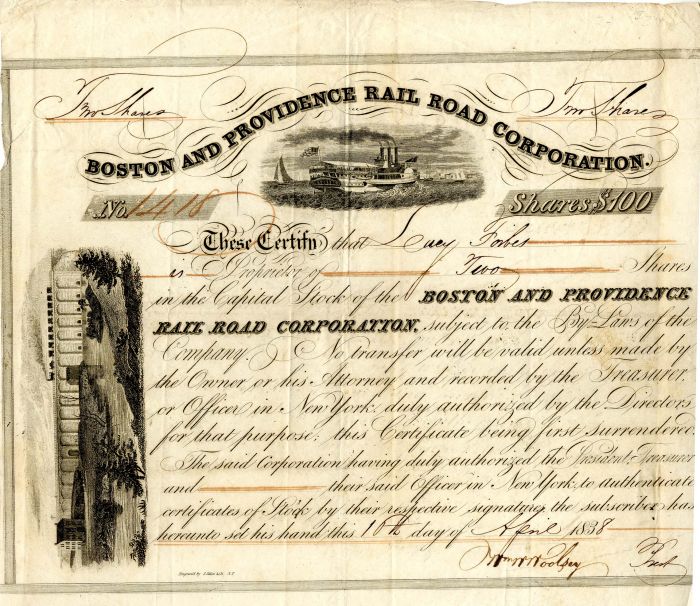 Two Shares Two Shares
BOSTON AND PROVIDENCE RAIL ROAD CORPORATION.
No. 1418 Shares, $100
These Certify that Lucy Forbes
is Proprietor of Two Shares
in the Capital Stock of the BOSTON AND PROVIDENCE
RAIL ROAD CORPORATION, subject to the By-Laws of the
Company. No transfer will be valid unless made by
the Owner, or his Attorney and recorded by the Treasurer,
or Officer in New York, duly authorized by the Directors
for that purpose; this Certificate being first surrendered.
The said Corporation having duly authorized the President, Treasurer
and their said Officer in New York, to authenticate
certificates of Stock by their respective signatures the subscriber has
hereunto set his hand this 16th day of April 1838
Wm W Woolsey Prest
Engraved by N.Y.